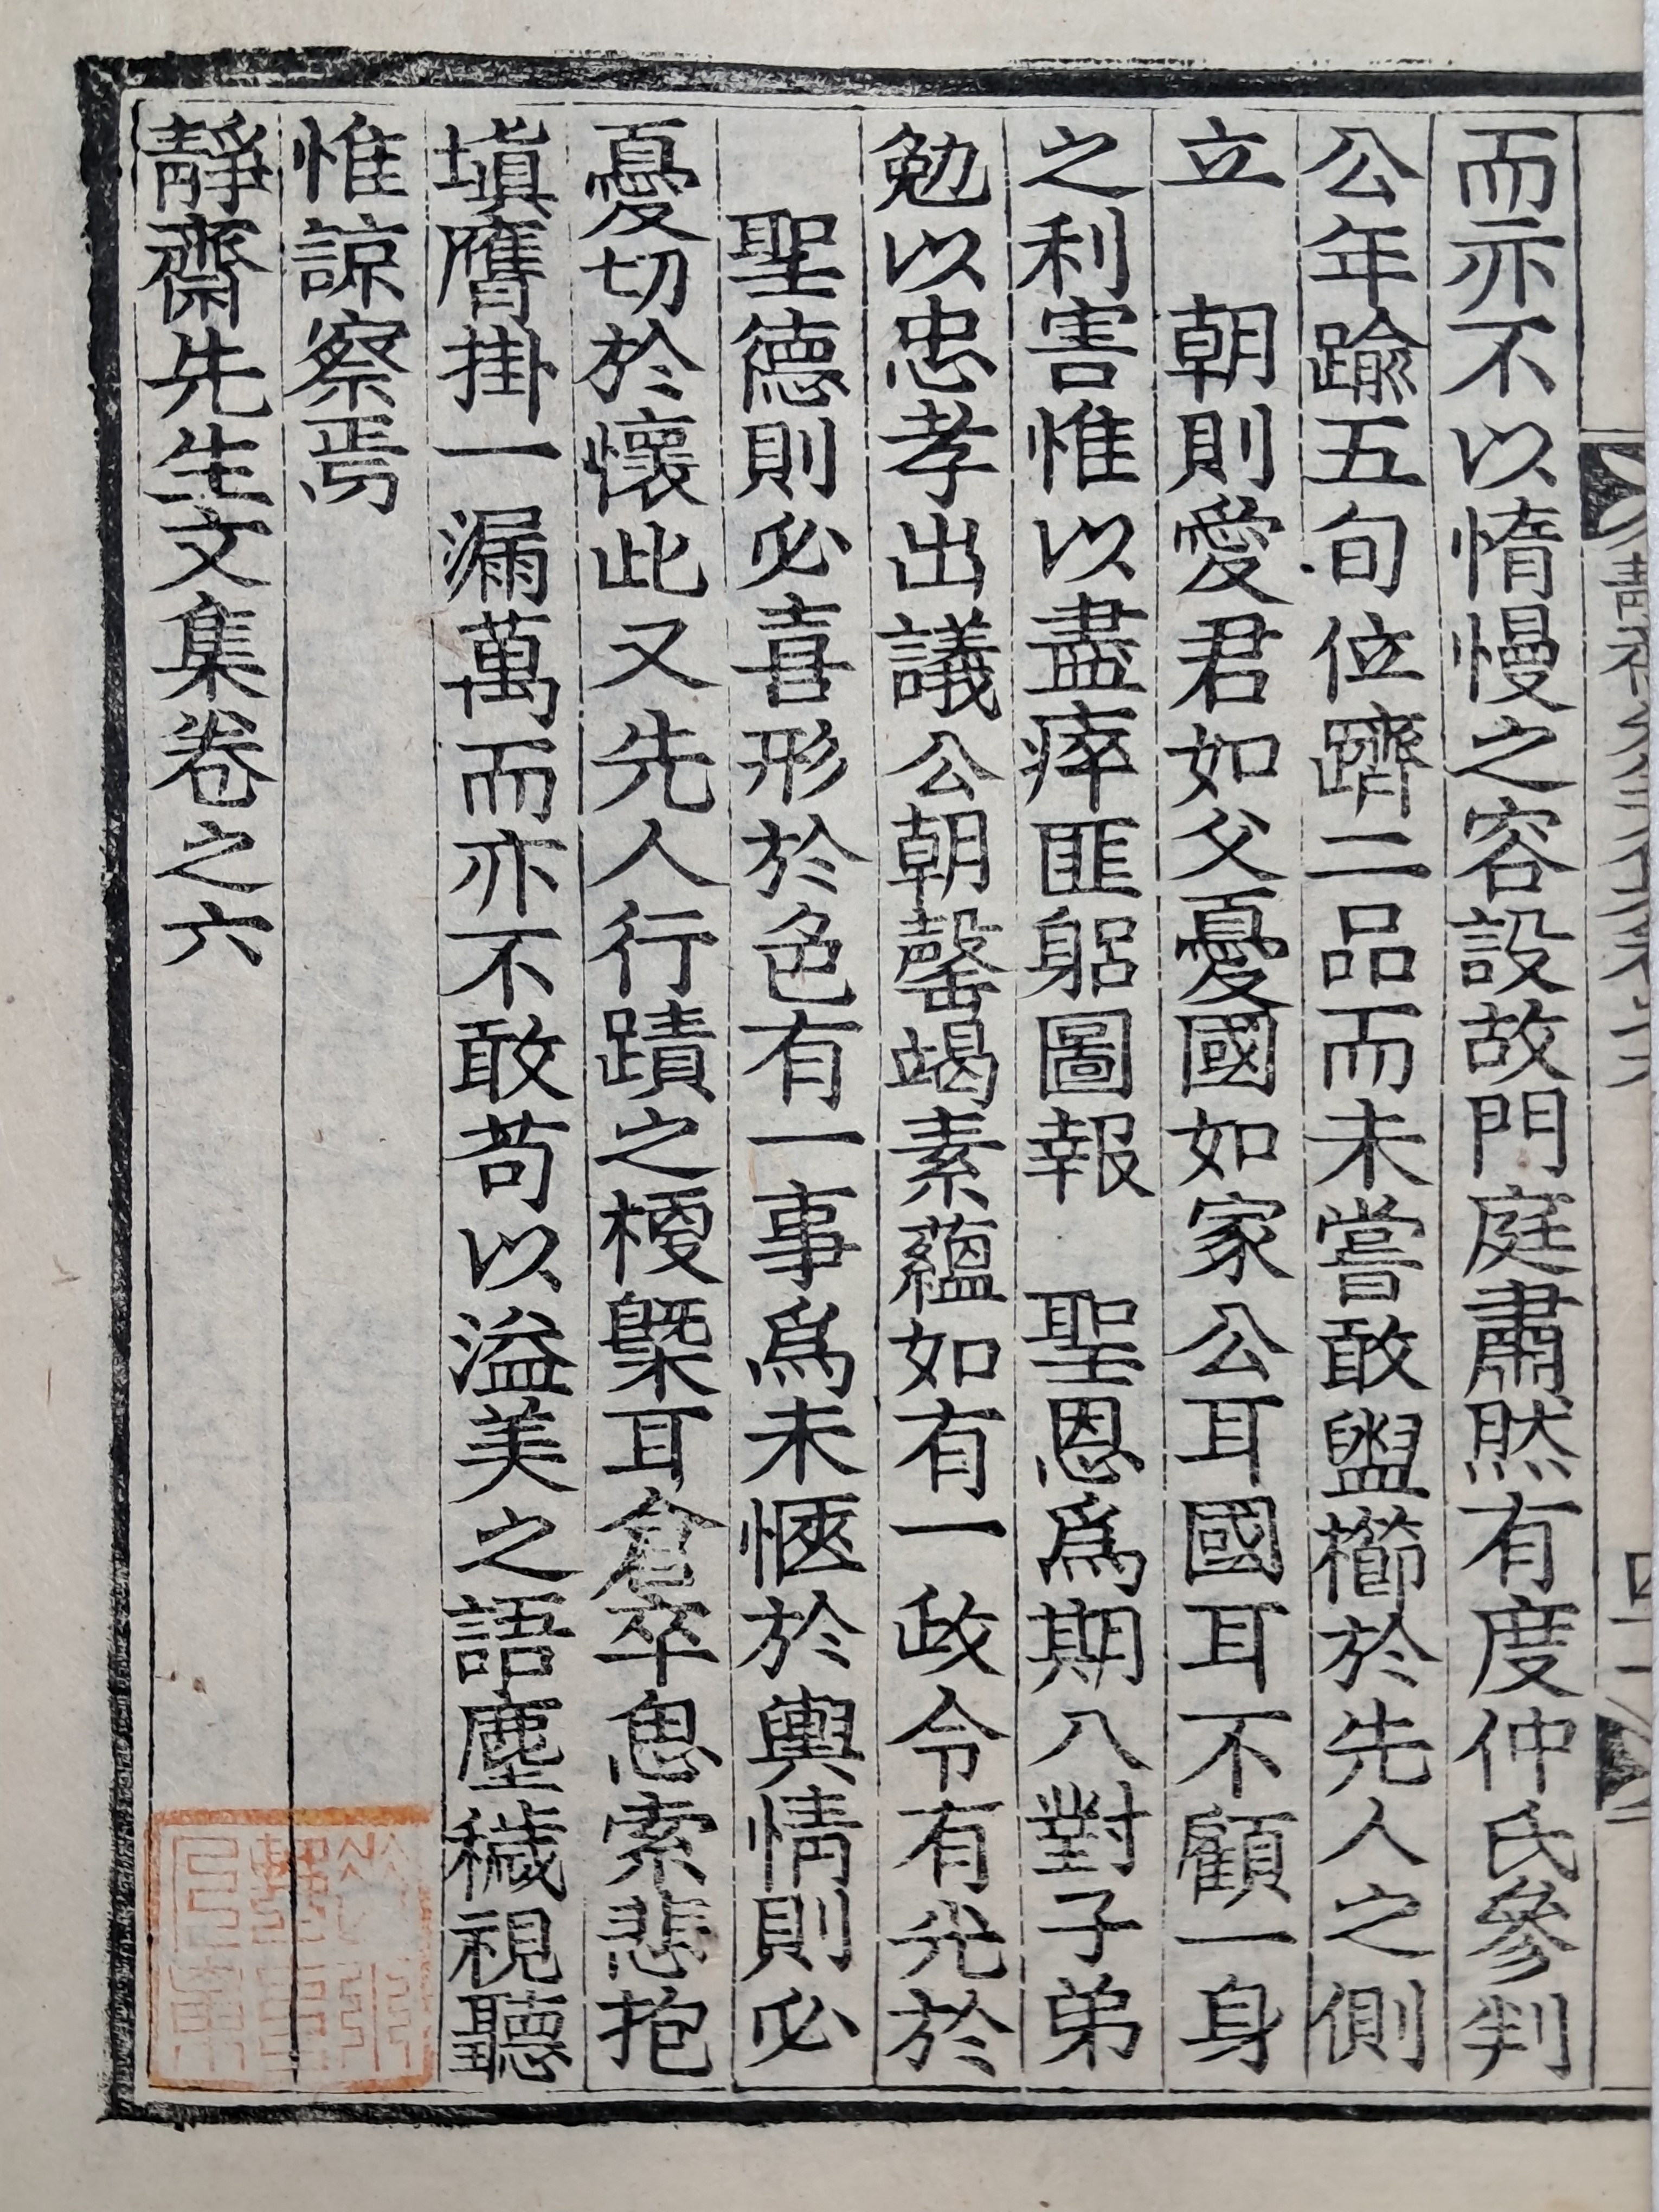 而亦不以惰慢之容設故門庭肅然有度仲氏參判
公年踰五旬位躋二品而未嘗敢盥櫛於先人之側
立　朝則愛君如父憂國如家公耳國耳不顧一身
之利害惟以盡瘁匪躬圖報　聖恩爲期八對子弟
勉以忠孝出議公朝罄竭素蘊如有一政令有光於
　聖德則必喜形於色有一事爲未愜於輿情則必
憂切於懷此又先人行蹟之梗槩耳倉卒思索悲抱
塡膺掛一漏萬而亦不敢苟以溢美之語塵穢視聽
惟諒察焉
靜齋先生文集卷之六